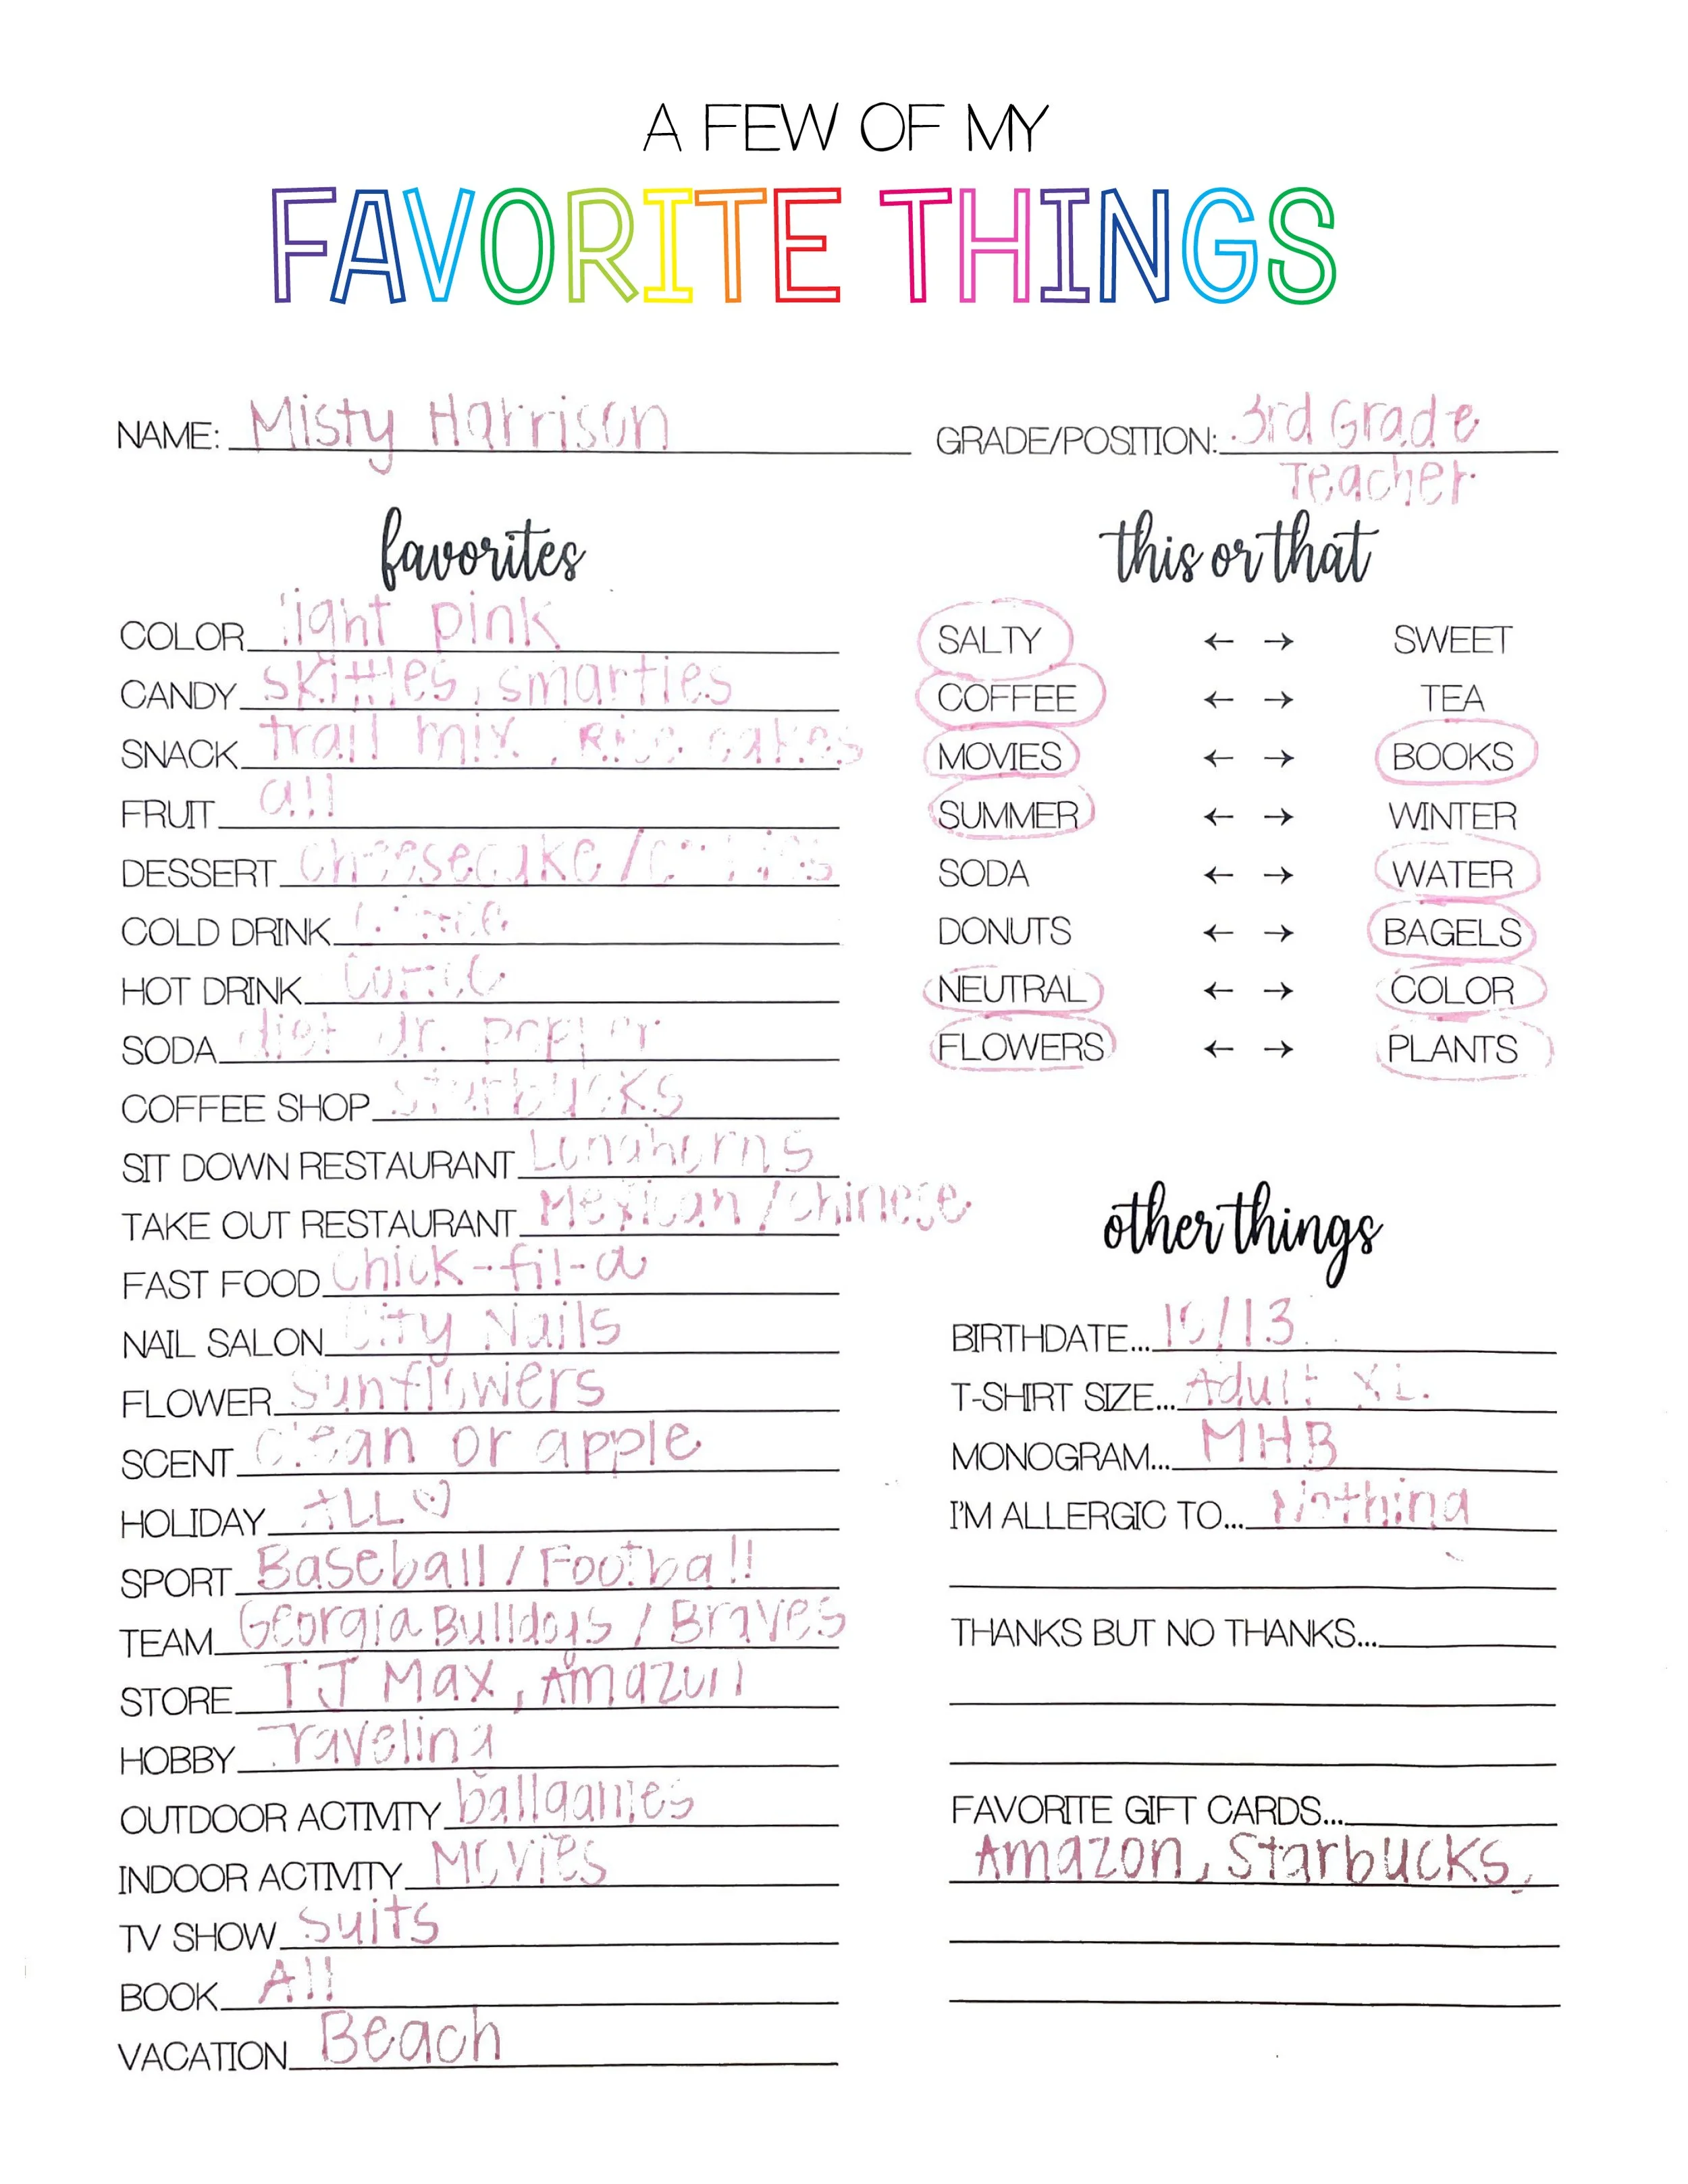 A FEW OF MY
FAVORITE THINGS
NAME: Misty Harrison
GRADE/POSITION: 3rd Grade
Teacher
favorites
COLOR light pink
CANDY skittles, smarties
SNACK trail mix, Rice cakes
FRUIT all
DESSERT cheesecake /
COLD DRINK
HOT DRINK coffee
SODA diet dr. pepper
COFFEE SHOP starbucks
SIT DOWN RESTAURANT Longhorns
TAKE OUT RESTAURANT Mexican / chinese
FAST FOOD Chick-fil-a
NAIL SALON City Nails
FLOWER sunflowers
SCENT clean or apple
HOLIDAY ALL ♡
SPORT Baseball / Football
TEAM Georgia Bulldogs / Braves
STORE TJ Max, Amazon
HOBBY Traveling
OUTDOOR ACTIVITY ballgames
INDOOR ACTIVITY Movies
TV SHOW Suits
BOOK All
VACATION Beach
this or that
SALTY ← → SWEET
COFFEE ← → TEA
MOVIES ← → BOOKS
SUMMER ← → WINTER
SODA ← → WATER
DONUTS ← → BAGELS
NEUTRAL ← → COLOR
FLOWERS ← → PLANTS
other things
BIRTHDATE... 10/13
T-SHIRT SIZE... Adult XL.
MONOGRAM... MHB
I'M ALLERGIC TO... Nothing
THANKS BUT NO THANKS...
FAVORITE GIFT CARDS...
Amazon, Starbucks,